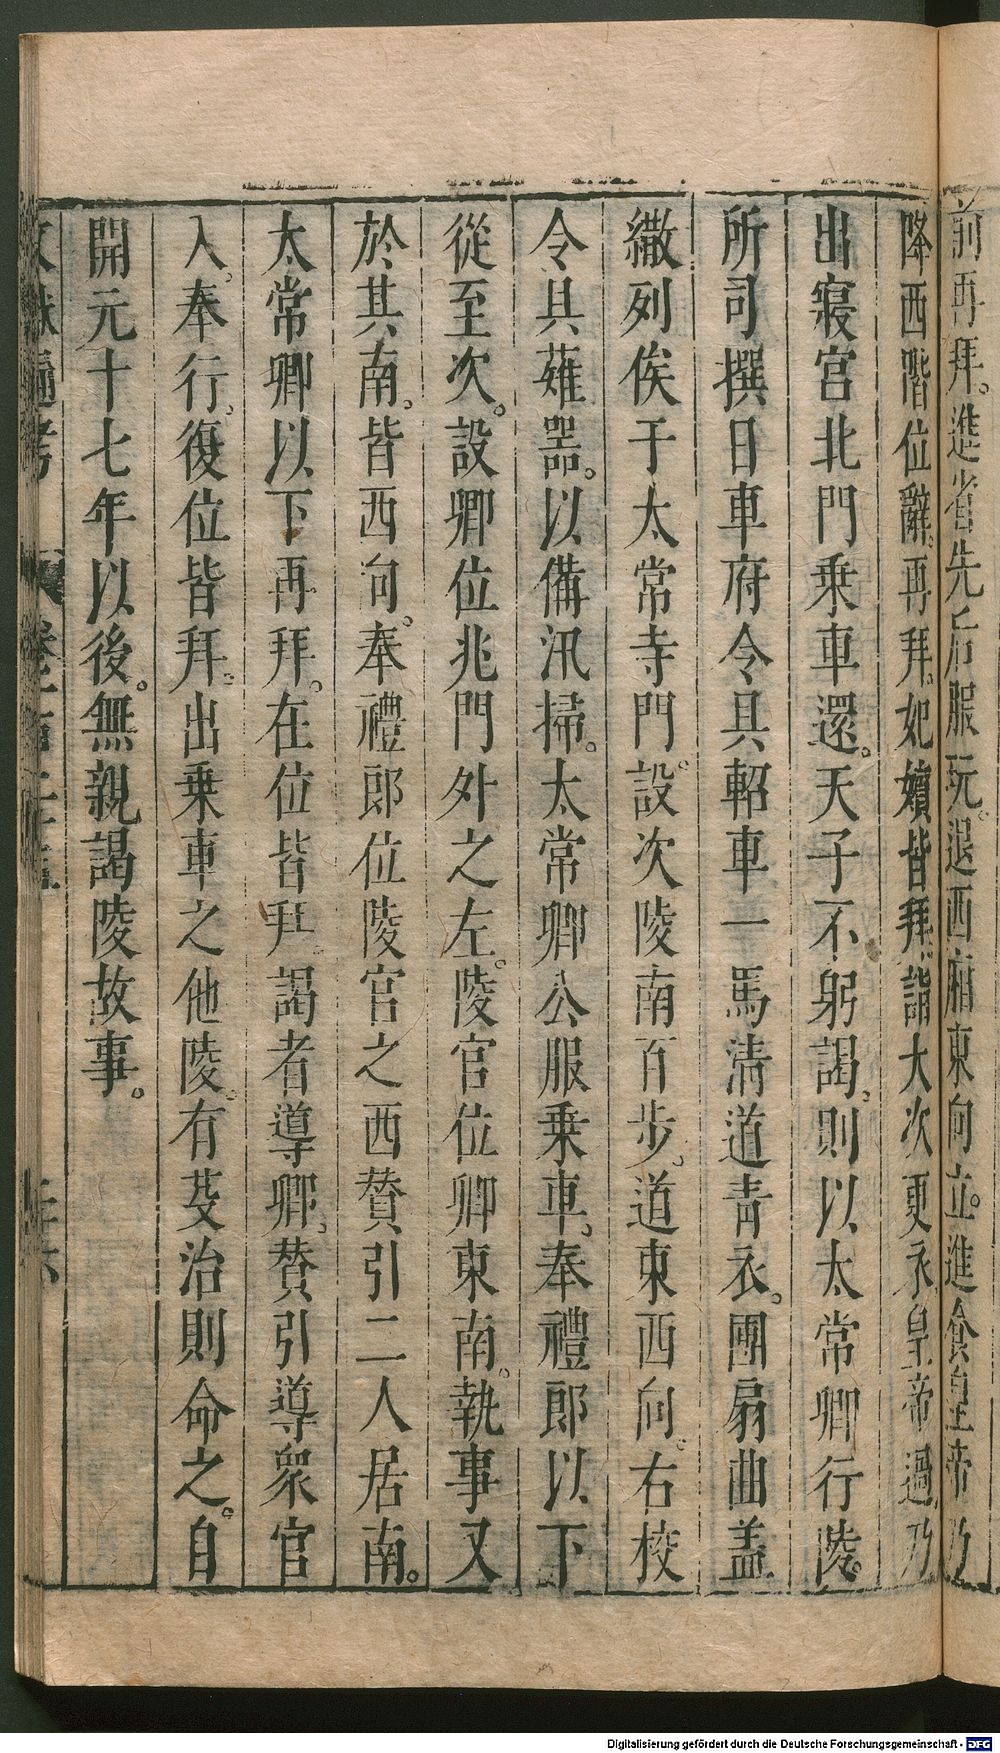 前再拜。進省先后服玩。退西廂東向立。進食。皇帝乃
降西階位辭。再拜。妃嬪皆拜。詣大次更衣。皇帝過。乃
出寢宮北門乗車還。天子不躬謁。則以太常卿行陵。
所司撰日車府令具軺車一馬清道青衣。團扇曲盖
繖列俟于太常寺門。設次陵南百步。道東西向。右校
令具薙器。以備汛掃。太常卿公服乗車。奉禮郎以下
從至次。設卿位兆門外之左。陵官位卿東南。執事又
於其南。皆西向。奉禮郎位陵官之西贊引二人居南。
太常卿以下再拜。在位皆拜謁者導卿。贊引導衆官
入。奉行。復位皆拜。出乗車之他陵。有芟治則命之。自
開元十七年以後。無親謁陵故事。
文獻通考 卷一百二十五 二十六
Digitalisierung gefördert durch die Deutsche Forschungsgemeinschaft - DFG